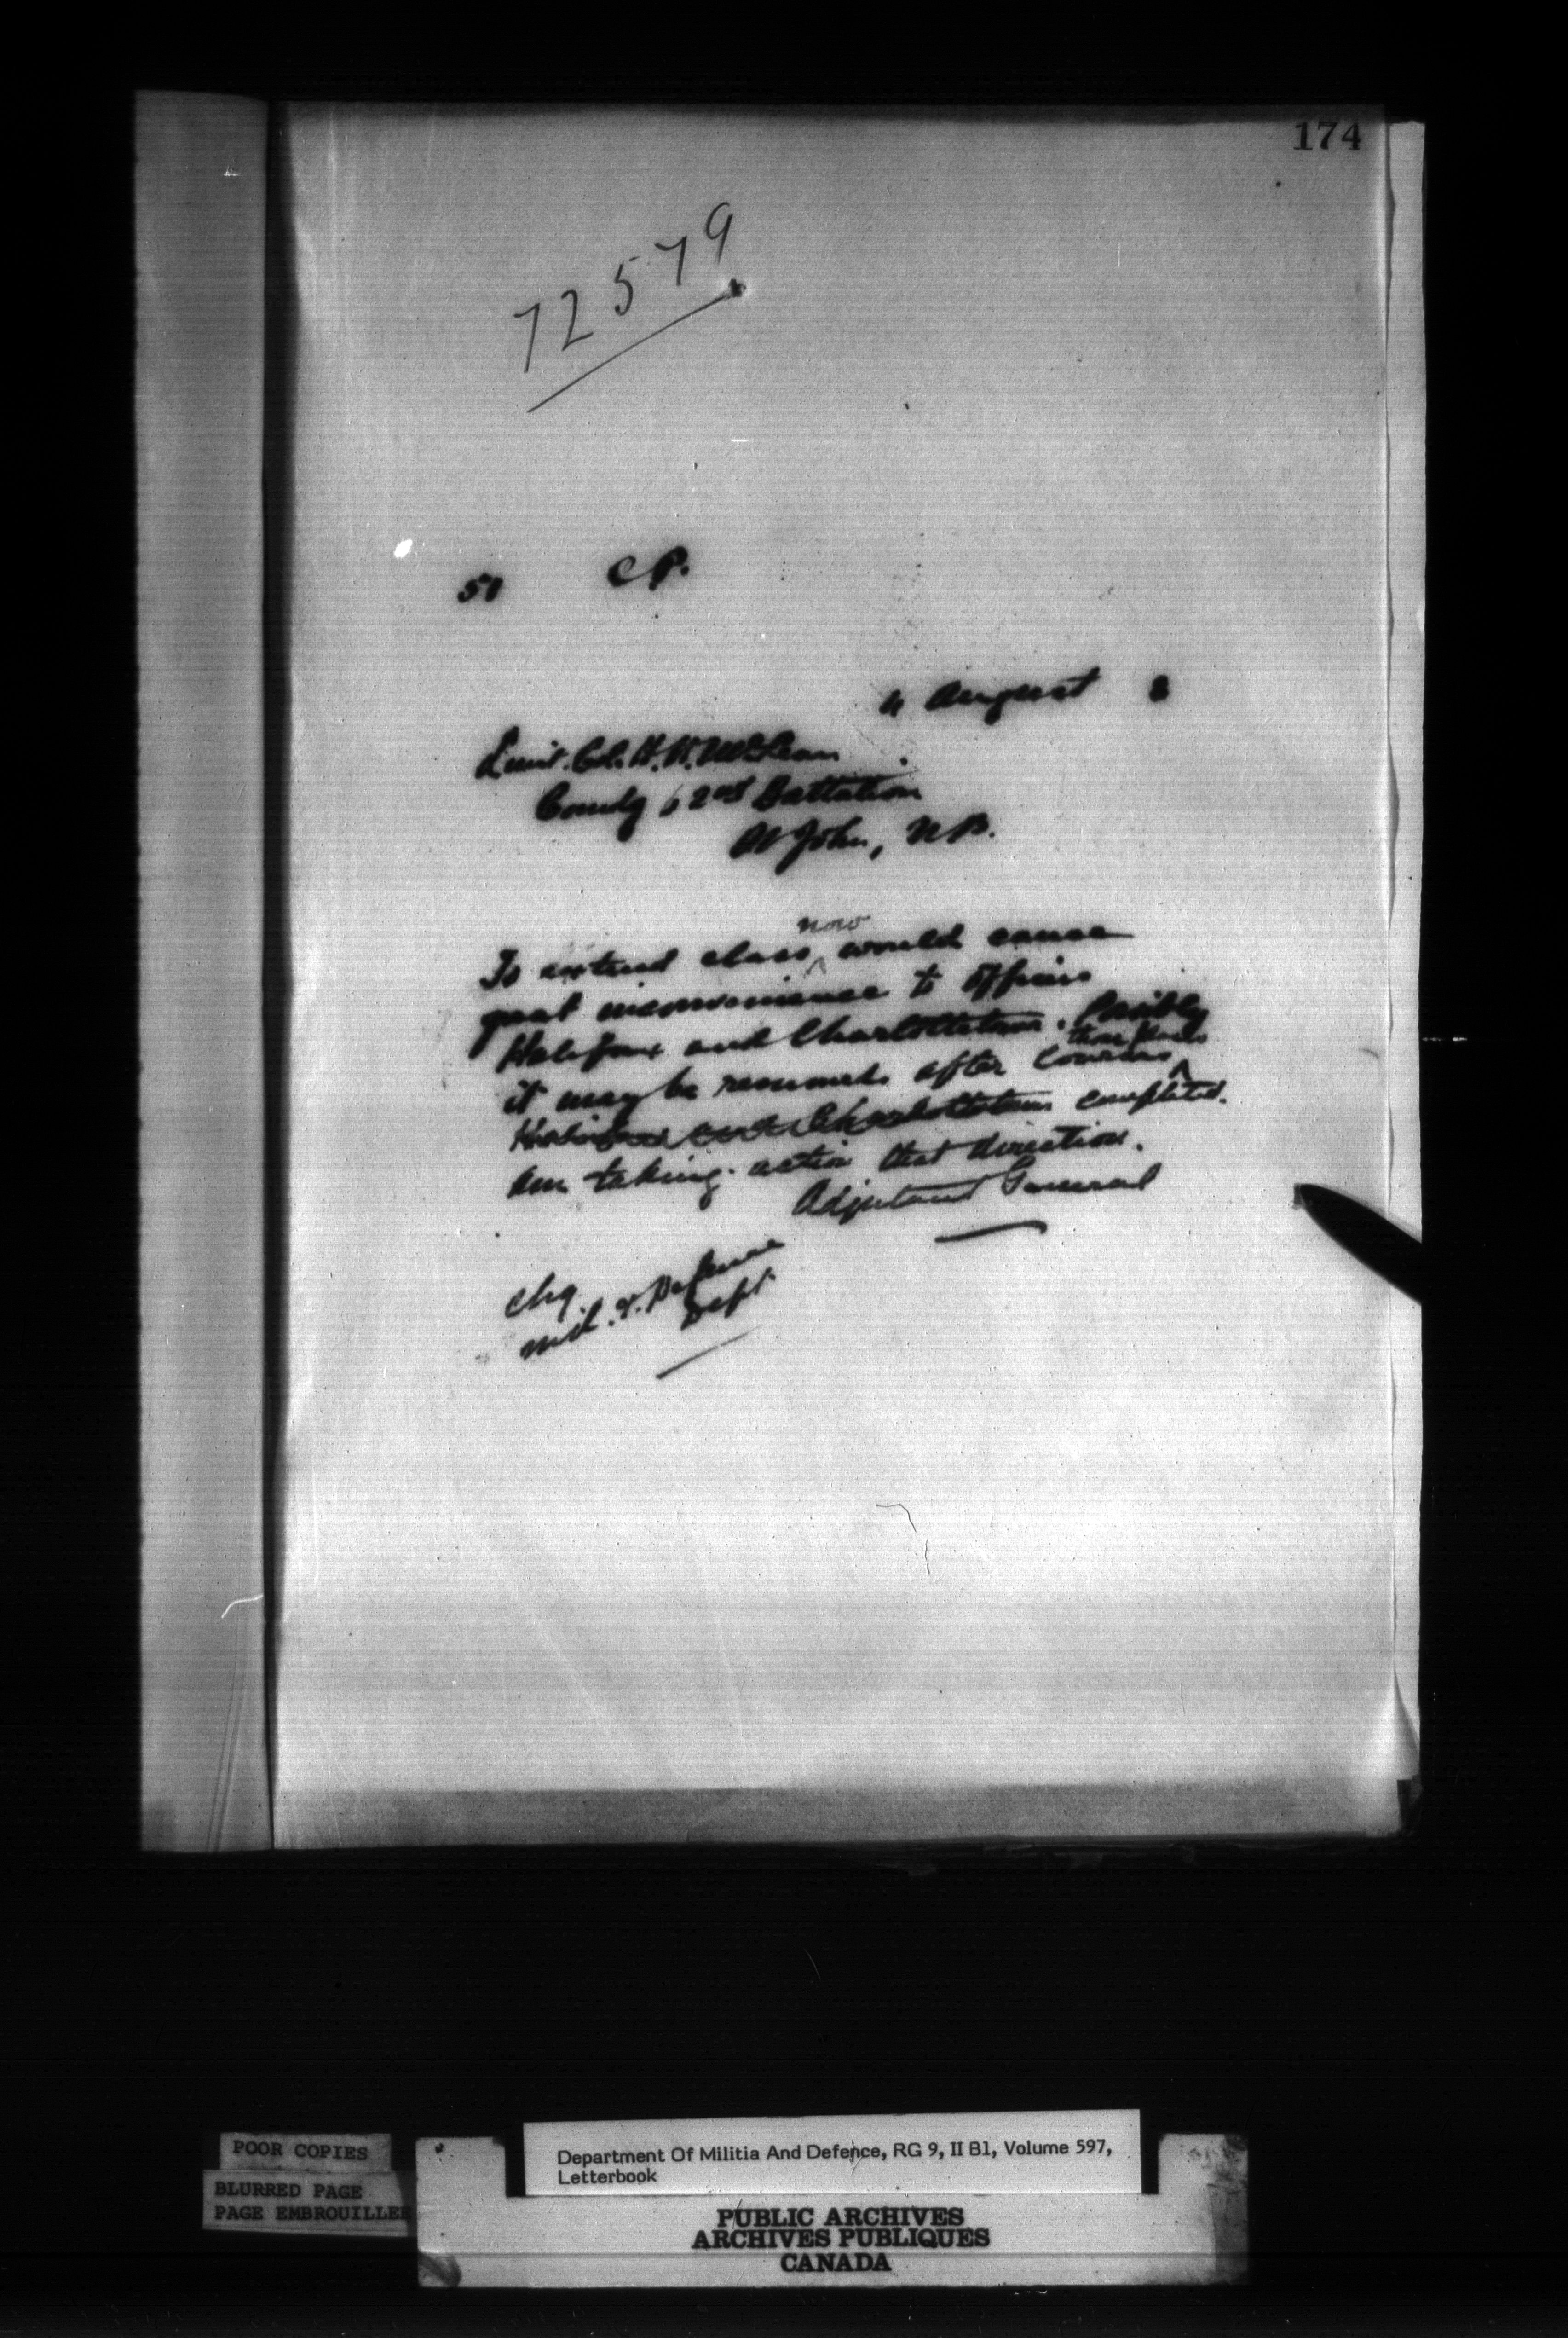 174
72579
51 C.P.
4 August 8
Lieut. Col. H. H. McLean
Comdg 62nd Battalion
St John, N.B.
now
To extend class would cause
great inconvenience to officers
Halifax and Charlottetown. Possibly
those places
it may be resumed after courses
Halifax and Charlottetown completed.
Am taking action that direction.
Adjutant General
Chg.
Mil. & Defence
Dept
POOR COPIES
BLURRED PAGE
PAGE EMBROUILLEE
Department Of Militia And Defence, RG 9, II B1, Volume 597,
Letterbook
PUBLIC ARCHIVES
ARCHIVES PUBLIQUES
CANADA